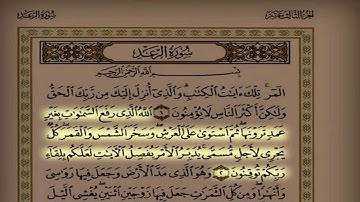 الجزء الثالث عشر سورة الرعد
سورة الرعد
بسم الله الرحمن الرحيم
المر تلك ءايت الكتب والذى أنزل إليك من ربك الحق
ولكن أكثر الناس لا يؤمنون ١ الله الذى رفع السموت بغير
عمد ترونها ثم استوى على العرش وسخر الشمس والقمر كل
يجرى لأجل مسمى يدبر الأمر يفصل الأيت لعلكم بلقاء
ربكم توقنون ٢ وهو الذى مد الأرض وجعل فيها روسى
وأنهرا ومن كل الثمرت جعل فيها زوجين اثنين يغشى اليل